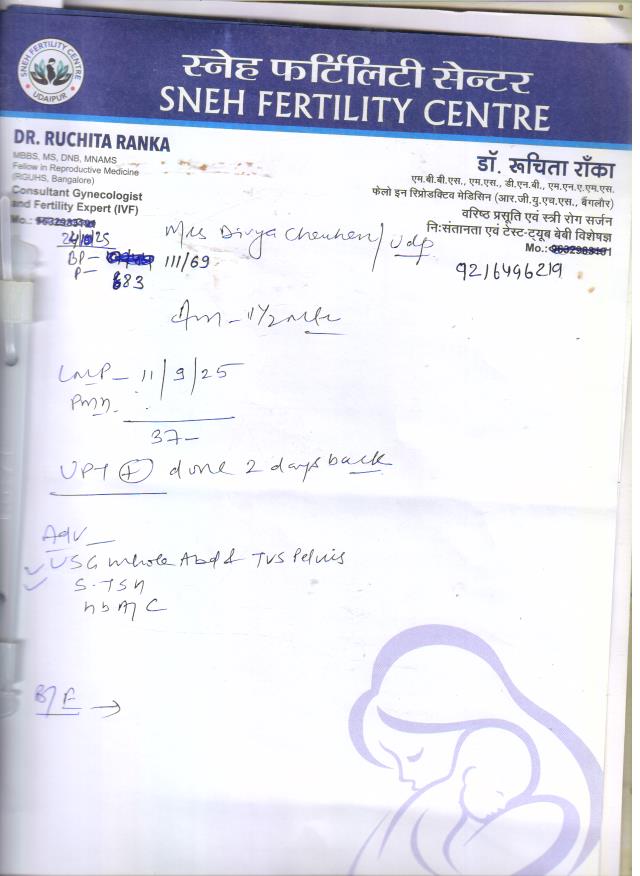 SNEH FERTILITY CENTRE
UDAIPUR
स्नेह फर्टिलिटी सेन्टर
SNEH FERTILITY CENTRE
DR. RUCHITA RANKA
MBBS, MS, DNB, MNAMS
Fellow in Reproductive Medicine
(RGUHS, Bangalore)
Consultant Gynecologist
and Fertility Expert (IVF)
Mo.:
डॉ. रूचिता राँका
एम.बी.बी.एस., एम.एस., डी.एन.बी., एम.एन.ए.एम.एस.
फेलो इन रिप्रोडक्टिव मेडिसिन (आर.जी.यू.एच.एस., बैंगलोर)
वरिष्ठ प्रसूति एवं स्त्री रोग सर्जन
नि:संतानता एवं टेस्ट-ट्यूब बेबी विशेषज्ञ
Mo.:
9216496219
Mrs Divya Chauhan/ Udp
BP- 111/69
P- 83
LMP - 11/9/25
37-
UPT + done 2 days back
Adv
USG Whole Abd & TVS Pelvis
S. TSH